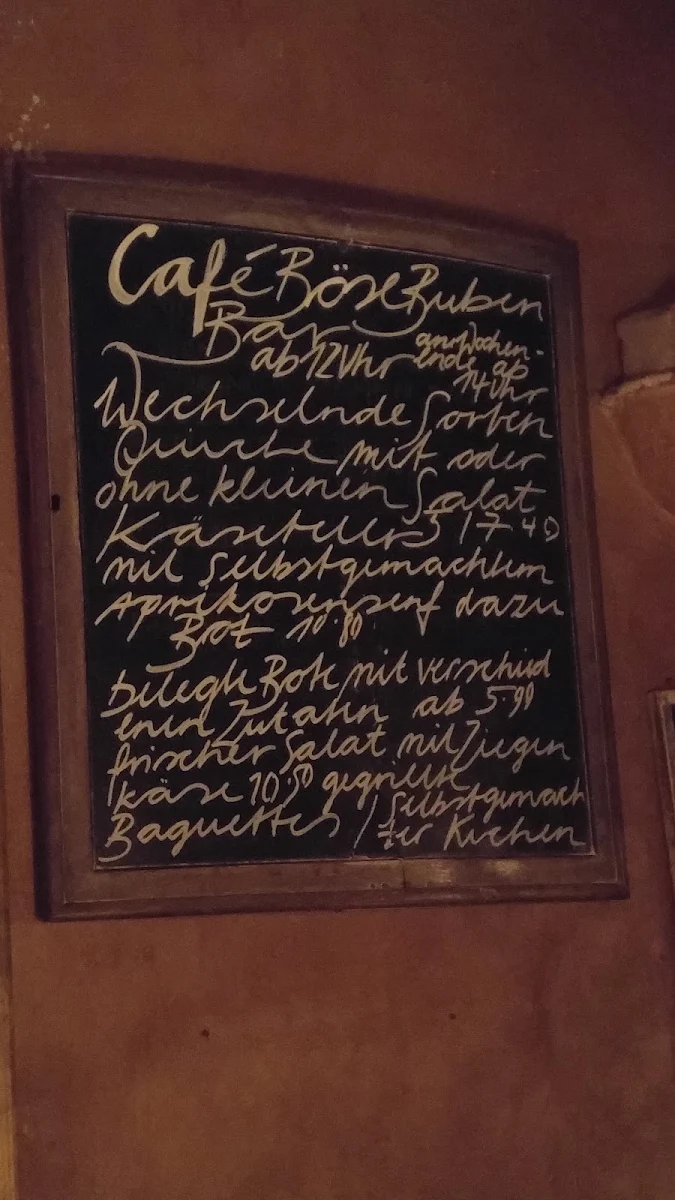 Café Böse Buben
Bar
ab 12 Uhr am Wochen-
ende ab
14 Uhr
Wechselnde Sorten
Quiche mit oder
ohne kleinen Salat
Käseteller 5 / 7 40
mit Selbstgemachtem
Aprikosensenf dazu
Brot 10.80
belegte Brote mit verschied
enen Zutaten ab 5.99
frischer Salat mit Ziegen
käse 10.50 gegrillte
Baguettes / Selbstgemach
ter Kuchen